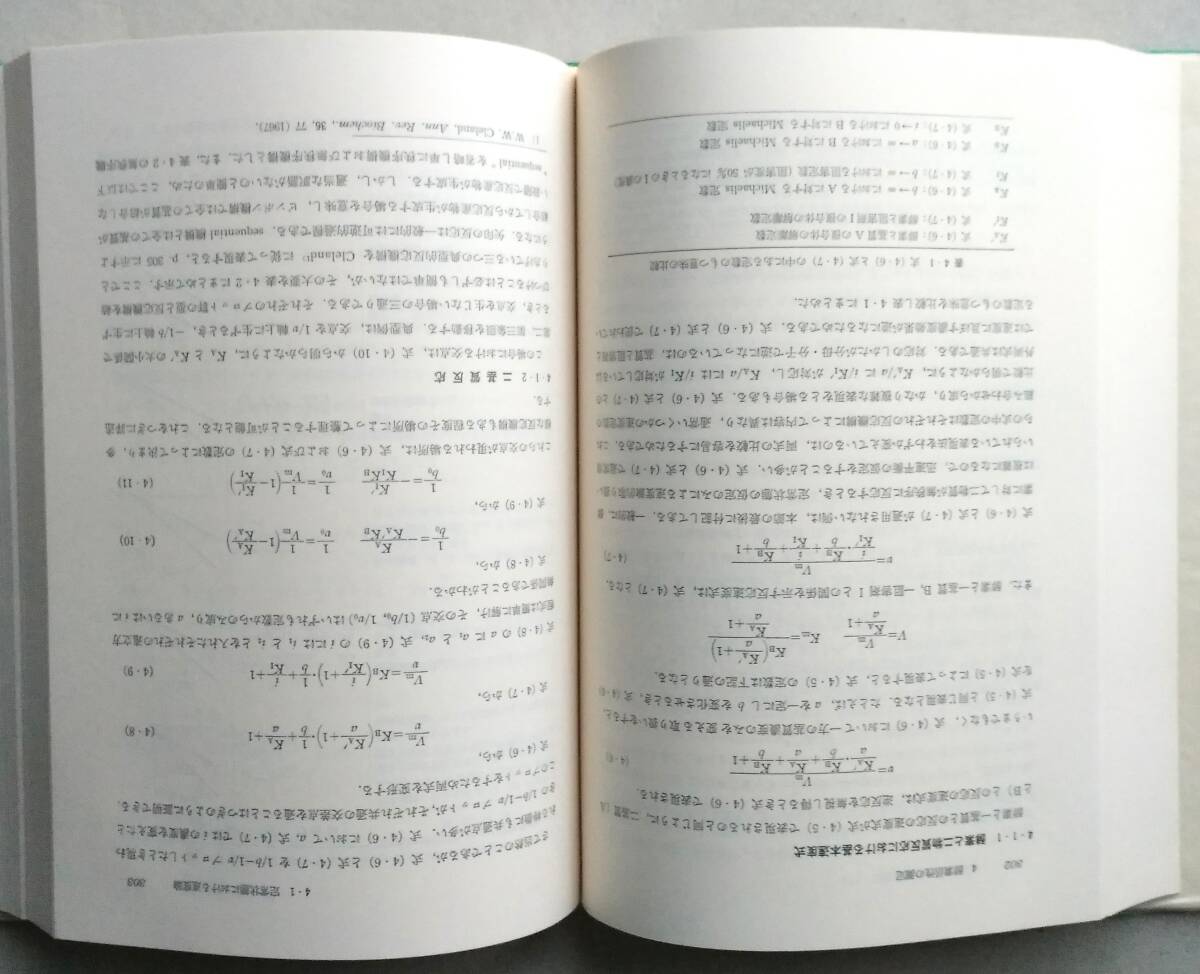 302 4 酵素活性の測定
4・1・1 酵素と二物質反応における基本速度式
酵素と一基質との反応の速度式が式 (4・5) で表現されるのと同じように, 二基質 (A
とB) との反応の速度式は, 逆反応を無視し得るとき式 (4・6) で表現される.
v=V_m/(K_A'/a・K_B/b+K_A/a+K_B/b+1) (4・6)
いうまでもなく, 式 (4・6) において一方の基質濃度のみを変える取り扱いをすると,
式 (4・5) と同じ表現となる. たとえば, a を一定にし b を変化させるとき, 式 (4・6)
を式 (4・5) によって表現すると, 式 (4・5) の定数は下記の通りとなる.
V=V_m/(K_A/a+1) K_m=K_B(K_A'/a+1)/(K_A/a+1)
また 酵素と一基質 B, 一阻害剤 I との関係を示す反応速度式は, 式 (4・7) となる.
v=V_m/(i/K_I'・K_B/b+i/K_I+K_B/b+1) (4・7)
式 (4・6) と式 (4・7) が適用されない例は, 本節の最後に付記してある. 一般的に, 酵
素に対して二物質が無秩序に反応するとき, 定常状態の仮定のみによる速度論的取り扱い
は複雑になるので, 迅速平衡の仮定をすることが多い. 式 (4・6) と式 (4・7) で通常用
いられている表現法をわずか変えているのは, 両式の比較を容易にするためである. これ
らの式中の定数はそれぞれの反応機構によって内容は異なり, 通常いくつかの速度定数の
組み合わせから成り, かなり複雑な表現をとる場合もある. 式 (4・6) と式 (4・7) との
比較で明らかなように, K_A'/a に i/K_I' が対応し, K_A/a には i/K_I が対応している
外両式は共通である. 対応のしかたが分母・分子で逆になっているのは, 基質と阻害剤と
では速度に及ぼす濃度効果が逆になるためである. 式 (4・6) と式 (4・7) で使われてい
る定数のもつ意味を比較し表 4・1 にまとめた.
表 4・1 式 (4・6) と式 (4・7) の中にある定数のもつ意味の比較
K_A' 式 (4・6): 酵素と基質 A の複合体の解離定数
K_I' 式 (4・7): 酵素と阻害剤 I の複合体の解離定数
K_A 式 (4・6): b→∞ における A に対する Michaelis 定数
K_I 式 (4・7): b→∞ における阻害定数 (阻害度が 50% になるときの I の濃度)
K_B 式 (4・6): a→∞ における B に対する Michaelis 定数
K_B 式 (4・7): i→0 における B に対する Michaelis 定数
4・1 定常状態における速度論 303
さて当然のことであるが, 式 (4・6) と式 (4・7) を 1/b-1/v プロットしたとき現わ
れる特徴にも共通点が多い. 式 (4・6) において, a, 式 (4・7) では i の濃度を変えたと
きの 1/b-1/v プロットが, それぞれ共通の交差点を通ることはつぎのように証明できる.
このプロットをするため両式を変形する.
式 (4・6) から,
V_m/v=K_B(K_A'/a+1)・1/b+K_A/a+1 (4・8)
式 (4・7) から,
V_m/v=K_B(i/K_I'+1)・1/b+i/K_I+1 (4・9)
式 (4・8) の a に a₁ と a₂, 式 (4・9) の i には i₁ と i₂ とを入れたそれぞれの連立方
程式は簡単に解け, その交点 (1/b₀, 1/v₀) はいずれも定数からのみ成り, a あるいは i に
無関係であることがわかる.
式 (4・8) から,
1/b₀=−K_A/(K_A'K_B) 1/v₀=1/V_m(1−K_A/K_A') (4・10)
式 (4・9) から,
1/b₀=−K_I'/(K_IK_B) 1/v₀=1/V_m(1−K_I'/K_I) (4・11)
これらの交点が現われる場所は, 式 (4・6) および式 (4・7) の定数によって決まり, 多
様な反応機構もある程度その場所によって整理することが可能となる. これをつぎに詳述
する.
4・1・2 二基質反応
この場合における交点は, 式 (4・10) から明らかなように, K_A と K_A' の大小関係で
第二, 第三象限を移動する. 典型例は, 交点を 1/v 軸上に生ずるとき, −1/b 軸上に生ず
るとき, 交点を生じない場合の三通りである. それぞれのプロット群の型と反応機構を結
びつけることは必ずしも簡単ではないが, その大要を表 4・2 にまとめて示す. ここでと
りあげている三つの典型的反応機構を Cleland¹⁾ に従って表現すると, p. 305 に示すよ
うになる. 矢印の反応は一般的には可逆的過程である. sequential 機構とは全ての基質が
結合してから反応産物が生成する場合を意味し, ピンポン機構では全ての基質が結合しな
い段階で反応産物が生成する. しかし, 適当な訳語がないのと簡単のため, ここでは以下
"sequential" を省略し単に秩序機構および無秩序機構とした. また, 表 4・2 の無秩序機
1) W.W. Cleland, Ann. Rev. Biochem., 36, 77 (1967).